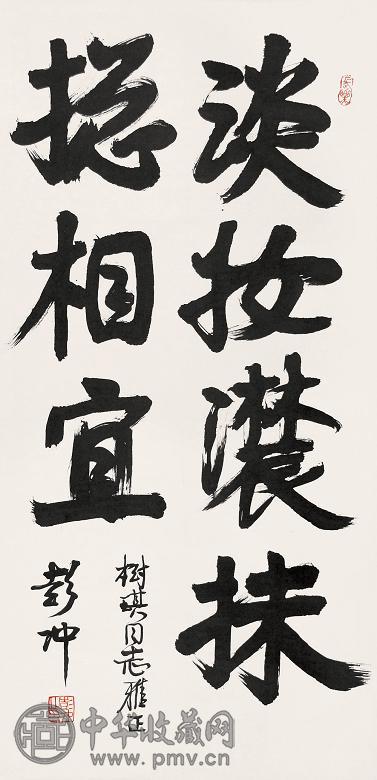 淡妆濃抹
揔相宜
树琪同志雅正
彭冲
中华收藏网
www.pmv.cn